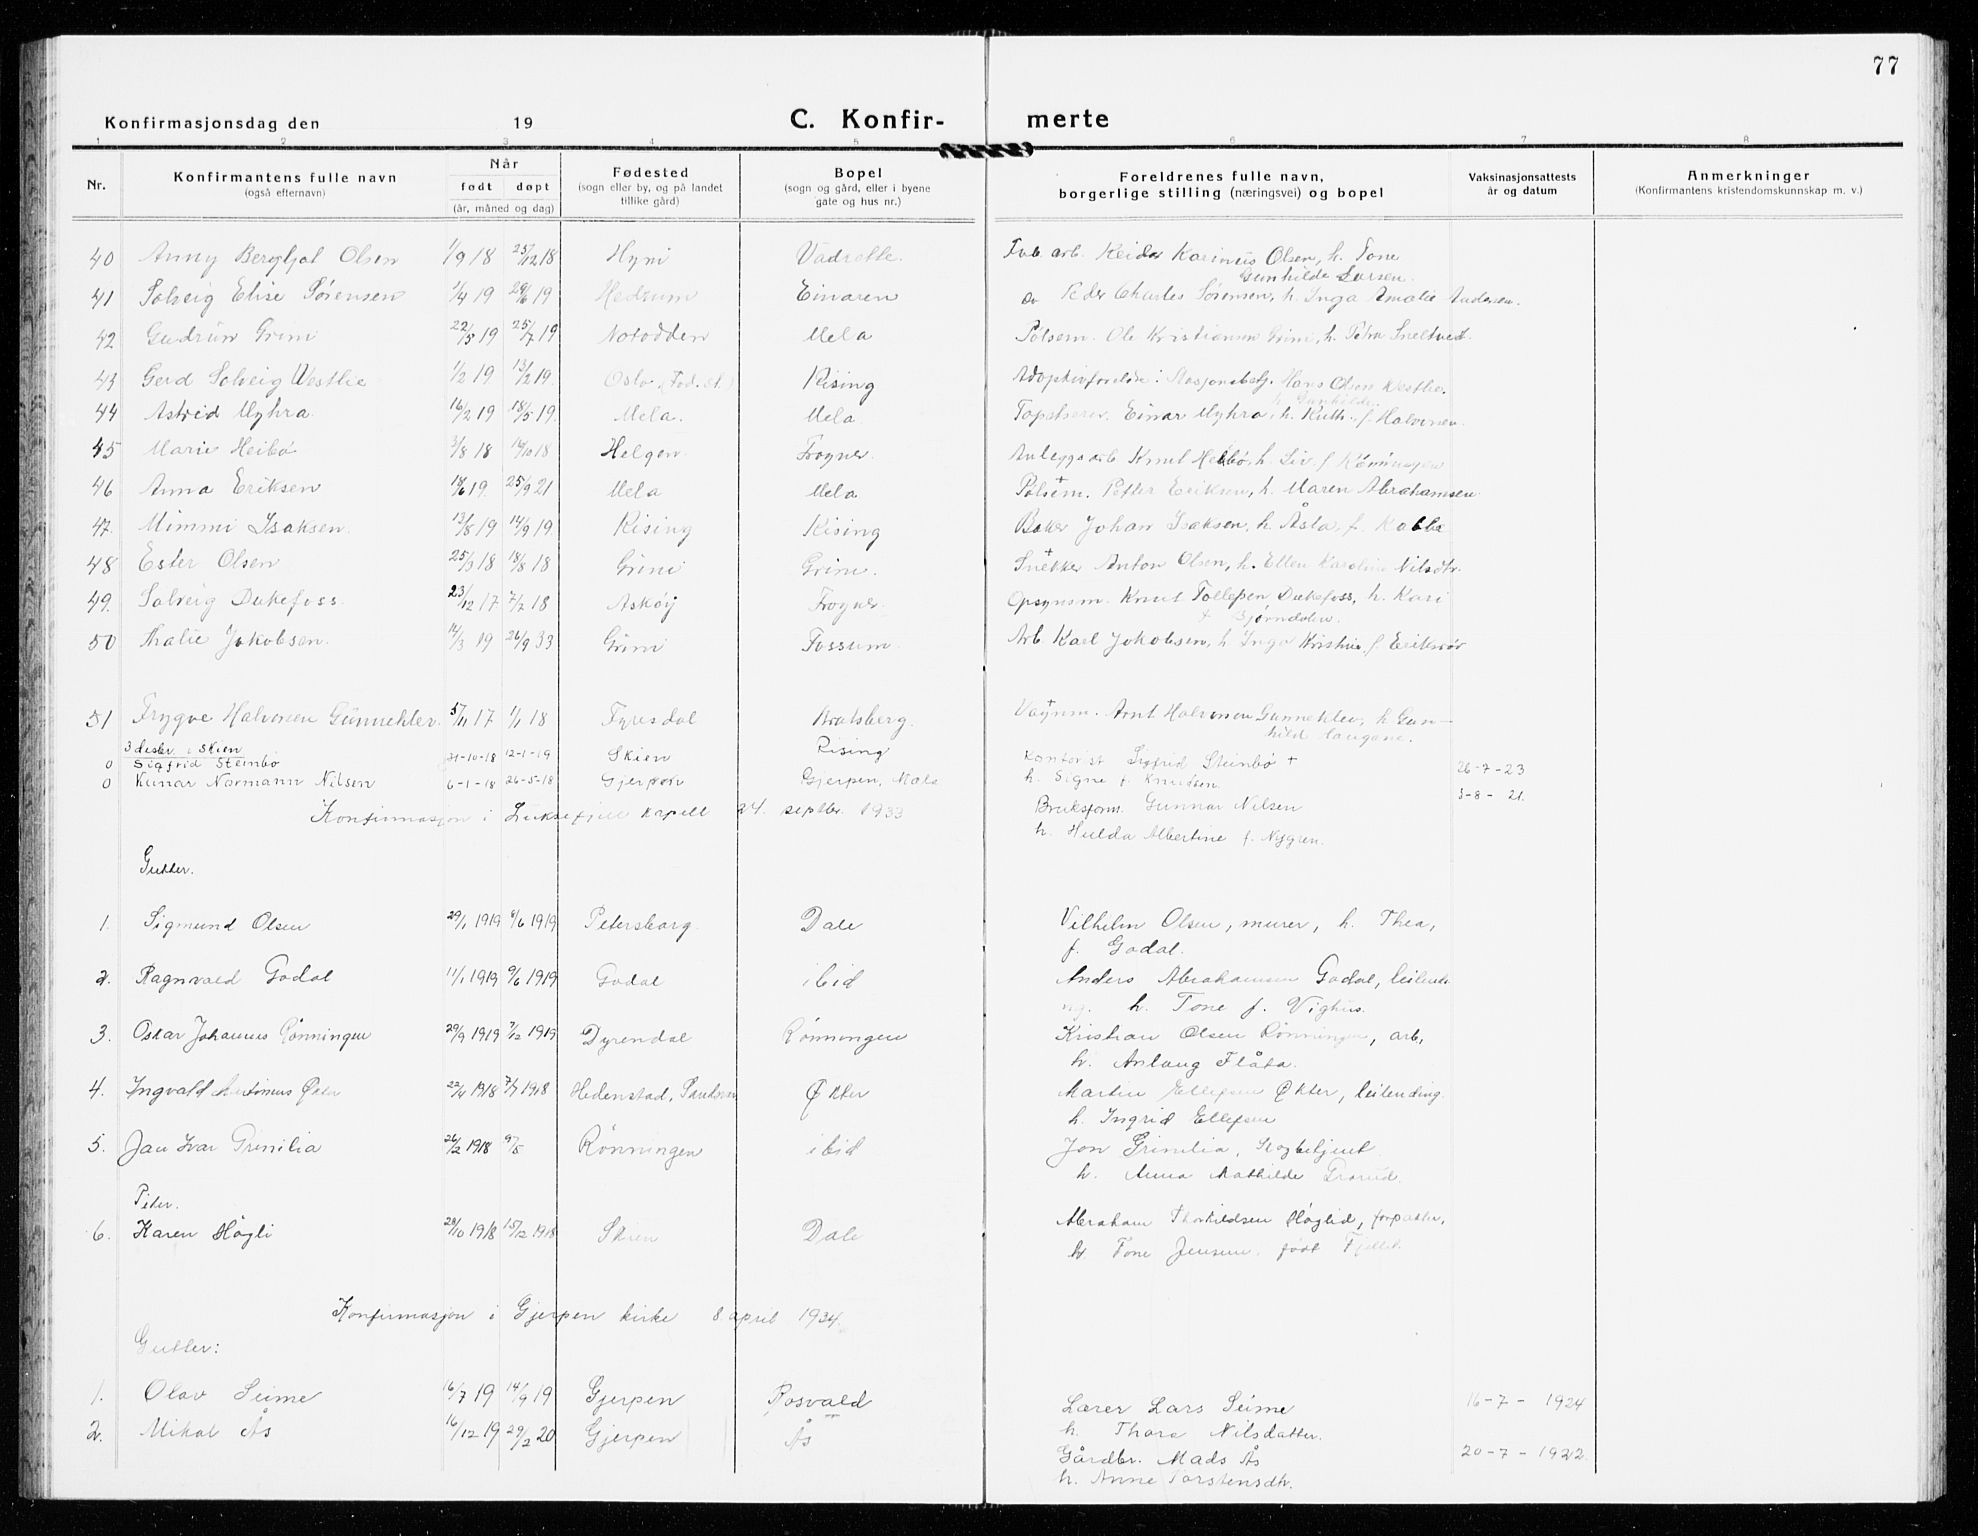 77
Konfirmasjonsdag den 19
C. Konfir- merte
1 2 3 4 5 6 7 8
Nr. Konfirmantens fulle navn (også efternavn) Når født døpt (år, måned og dag) Fødested (sogn eller by, og på landet tillike gård) Bopel (sogn og gård, eller i byene gate og hus nr.) Foreldrenes fulle navn, borgerlige stilling (næringsvei) og bopel Vaksinasjonsattests år og datum Anmerkninger (Konfirmantens kristendomskunnskap m. v.)
40 Anny Bergljot Olsen 1/9 18 25/12 18 Hyni Vadrette. Fab. arb. Reidar Karinius Olsen, h. Tone
Gunhilde Larsen.
41 Solveig Elise Sørensen 1/4 19 29/6 19 Hedrum Einaren Peder Charles Sørensen, h. Inga Amalie Andersen.
42 Gudrun Grini 22/5 19 25/7 19 Notodden Mela Pølsem. Ole Kristiansen Grini, h. Petra Sneltvedt.
43 Gerd Solveig Westlie 1/2 19 13/2 19. Oslo (Fød.st.) Rising Adoptivforeldre: Stasjonsbetj. Hans Olsen Westlie.
h. Gunhilde.
44 Astrid Myhra 16/2 19 18/5 19. Mela. Mela Einar Myhra, h. Ruth f. Halvorsen
45 Marie Heibø 3/8 18 14/10 18 Helgen Frogner. Anleggsarb. Knut Heibø, h. Liv f.
46 Anna Eriksen 18/6 19. 25/9 21 Mela Mela Pølsem. Petter Eriksen, h. Maren Abrahamsen
47. Mimmi Isaksen. 13/8 19 14/9 19. Rising Rising Baker Johan Isaksen, h. Åsta, f. Kabbe
48 Ester Olsen 25/3 18 18/8 18 Grini Grini. Snekker Anton Olsen, h. Ellen Karoline Nilsdtr.
49. Solveig Dukefoss. 23/12 17 7/2 18 Askøy Frogner. Opsynsm. Knut Tollefsen Dukefoss, h. Kari
Bjørndalen.
50 Thalie Jakobsen. 14/3 19 26/9 33 Grini Fossum. Arb. Karl Jakobsen, h. Inga Kristine f. Eriksrød
51 Trygve Halvorsen Gunneklev. 5/11 17 1/1 18 Fyresdal Bratsberg. Vaktm. Arnt Halvorsen Gunneklev, h. Gun-
hild Haugane.
3 desbr. i Skien
0 Sigfrid Steinbø 21-10-18 12-1-19 Skien Rising Kontorist Sigfrid Steinbø +
h. Signe f. Knudsen. 26-7-23
0 Runar Normann Nilsen 6-1-18 26-5-18 Gjerpen Gjerpen, Mæla Bruksform. Gunnar Nilsen 3-8-21.
h. Hulda Albertine f. Nygren.
Konfirmasjon i Luksefjell kapell 24. septbr. 1933
Gutter.
1. Sigmund Olsen 29/1 1919 9/6 1919 Petersborg. Dale Vilhelm Olsen, murer, h. Thea,
f. Godal.
2. Ragnvald Godal 11/1 1919 9/6 1919 Godal ibid Anders Abrahamsen Godal, leilend-
ing. h. Tone f. Vighus.
3. Oskar Johannes Rønningen 29/9 1919 7/12 1919 Dyrendal Rønningen Kristian Olsen Rønningen, arb.,
h. Anlaug Flåta.
4. Ingvald Martinius Økter 22/4 1918 7/7 1918 Hedenstad, Sandsvær Økter Martin Ellefsen Økter, leilending.
h. Ingrid Ellefsen
5. Jan Ivar Grinilia 26/2 1918 9/5 Rønningen ibid Jon Grinilia, Skogbetjent.
h. Anna Mathilde Grorud.
Piker.
6. Karen Høgli 28/10 1918 15/12 1918 Skien Dale Abraham Thorkildsen Høglid, forpakter,
h. Tone Jensen. født Fjellet.
Konfirmasjon i Gjerpen kirke 8. april 1934.
Gutter:
1. Olav Seime 16/7 19 14/9 19 Gjerpen Rosvald Lærer Lars Seime 16-7-1924
h. Thora Nilsdatter.
2. Mikal Ås 16/12 19 29/2 20 Gjerpen Ås Gårdbr. Mads Ås 20-7-1922.
h. Anne Torstensdtr.